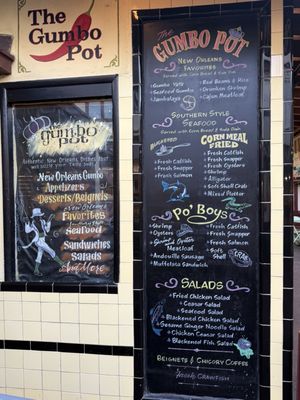 The
Gumbo
Pot
the
Gumbo
Pot
Authentic New Orleans Dishes
New Orleans Gumbo
Appetizers
Desserts/Beignets
New Orleans
Favorites
Seafood
Sandwiches
Salads
The
Gumbo Pot
New Orleans
Favorites
Served with Corn Bread &
Gumbo Yaya
Seafood Gumbo
Jambalaya
Red Beans & Rice
Drunken Shrimp
Cajun Meatloaf
Southern Style
Seafood
Served with Corn Bread &
Blackened
Fresh Catfish
Fresh Snapper
Fresh Salmon
Corn Meal
Fried
Fresh Catfish
Fresh Snapper
Fresh Oysters
Shrimp
Alligator
Soft Shell Crab
Mixed Platter
Po' Boys
Shrimp
Oysters
Meatloaf
Andouille Sausage
Muffelata Sandwich
Fresh Catfish
Fresh Snapper
Fresh Salmon
Soft
Shell
Crab
Salads
Fried Chicken Salad
Caesar Salad
Seafood Salad
Blackened Chicken Salad
Sesame Ginger Noodle Salad
Chicken Caesar Salad
Blackened Fish Salad
Beignets & Chicory Coffee
Crawfish